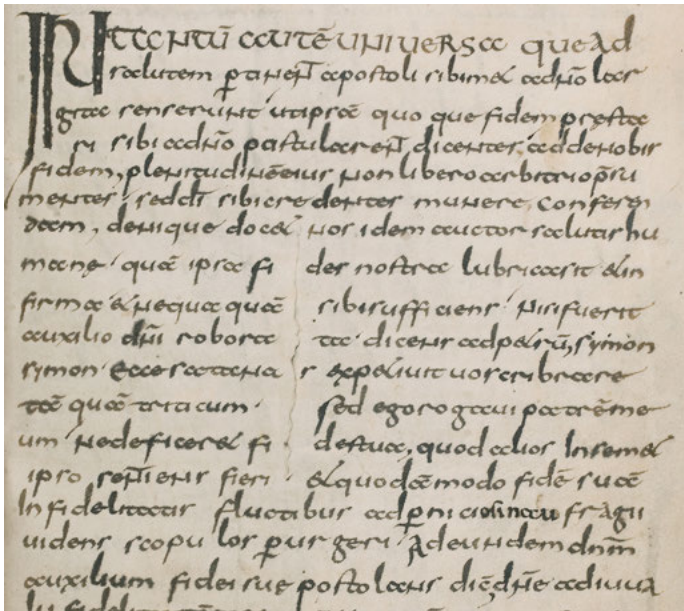 IN tantū autē universa que ad
salutem ꝑtinen̄t apostoli sibimet ad dn̄o lar
gita senserunt ut ipsa quoque fidem presta
ri sibi ad dn̄o pastularen̄t dicentes, adde nobis
fidem, plenitudinē eius non libero arbitrio p̄su
mentes, sed dī sibi credentes munere, conferen
dam, denique docet nos idem auctor salutis hu
mane, quā ipsa fi des nostra lubrica sit et in
firma et nequaquā sibi sufficiens, nisi fuerit
auxilio dn̄i robora ta dicens ad petrū, symon
symon, ecce satana s expetivit vos cribrare
tā quā triticum, sed ego rogavi patrē me
um, ne deficeret fi des tua, quod alios In semet
ipso sentiens fieri et quodāmodo fidē suā
Infidelitatis fluctibus ad ꝑniciosi nau fragii
videns scopulos ꝑurgeri, Ad eundem dn̄m
auxilium fidei sue postolans dic̄ dn̄e adiuva